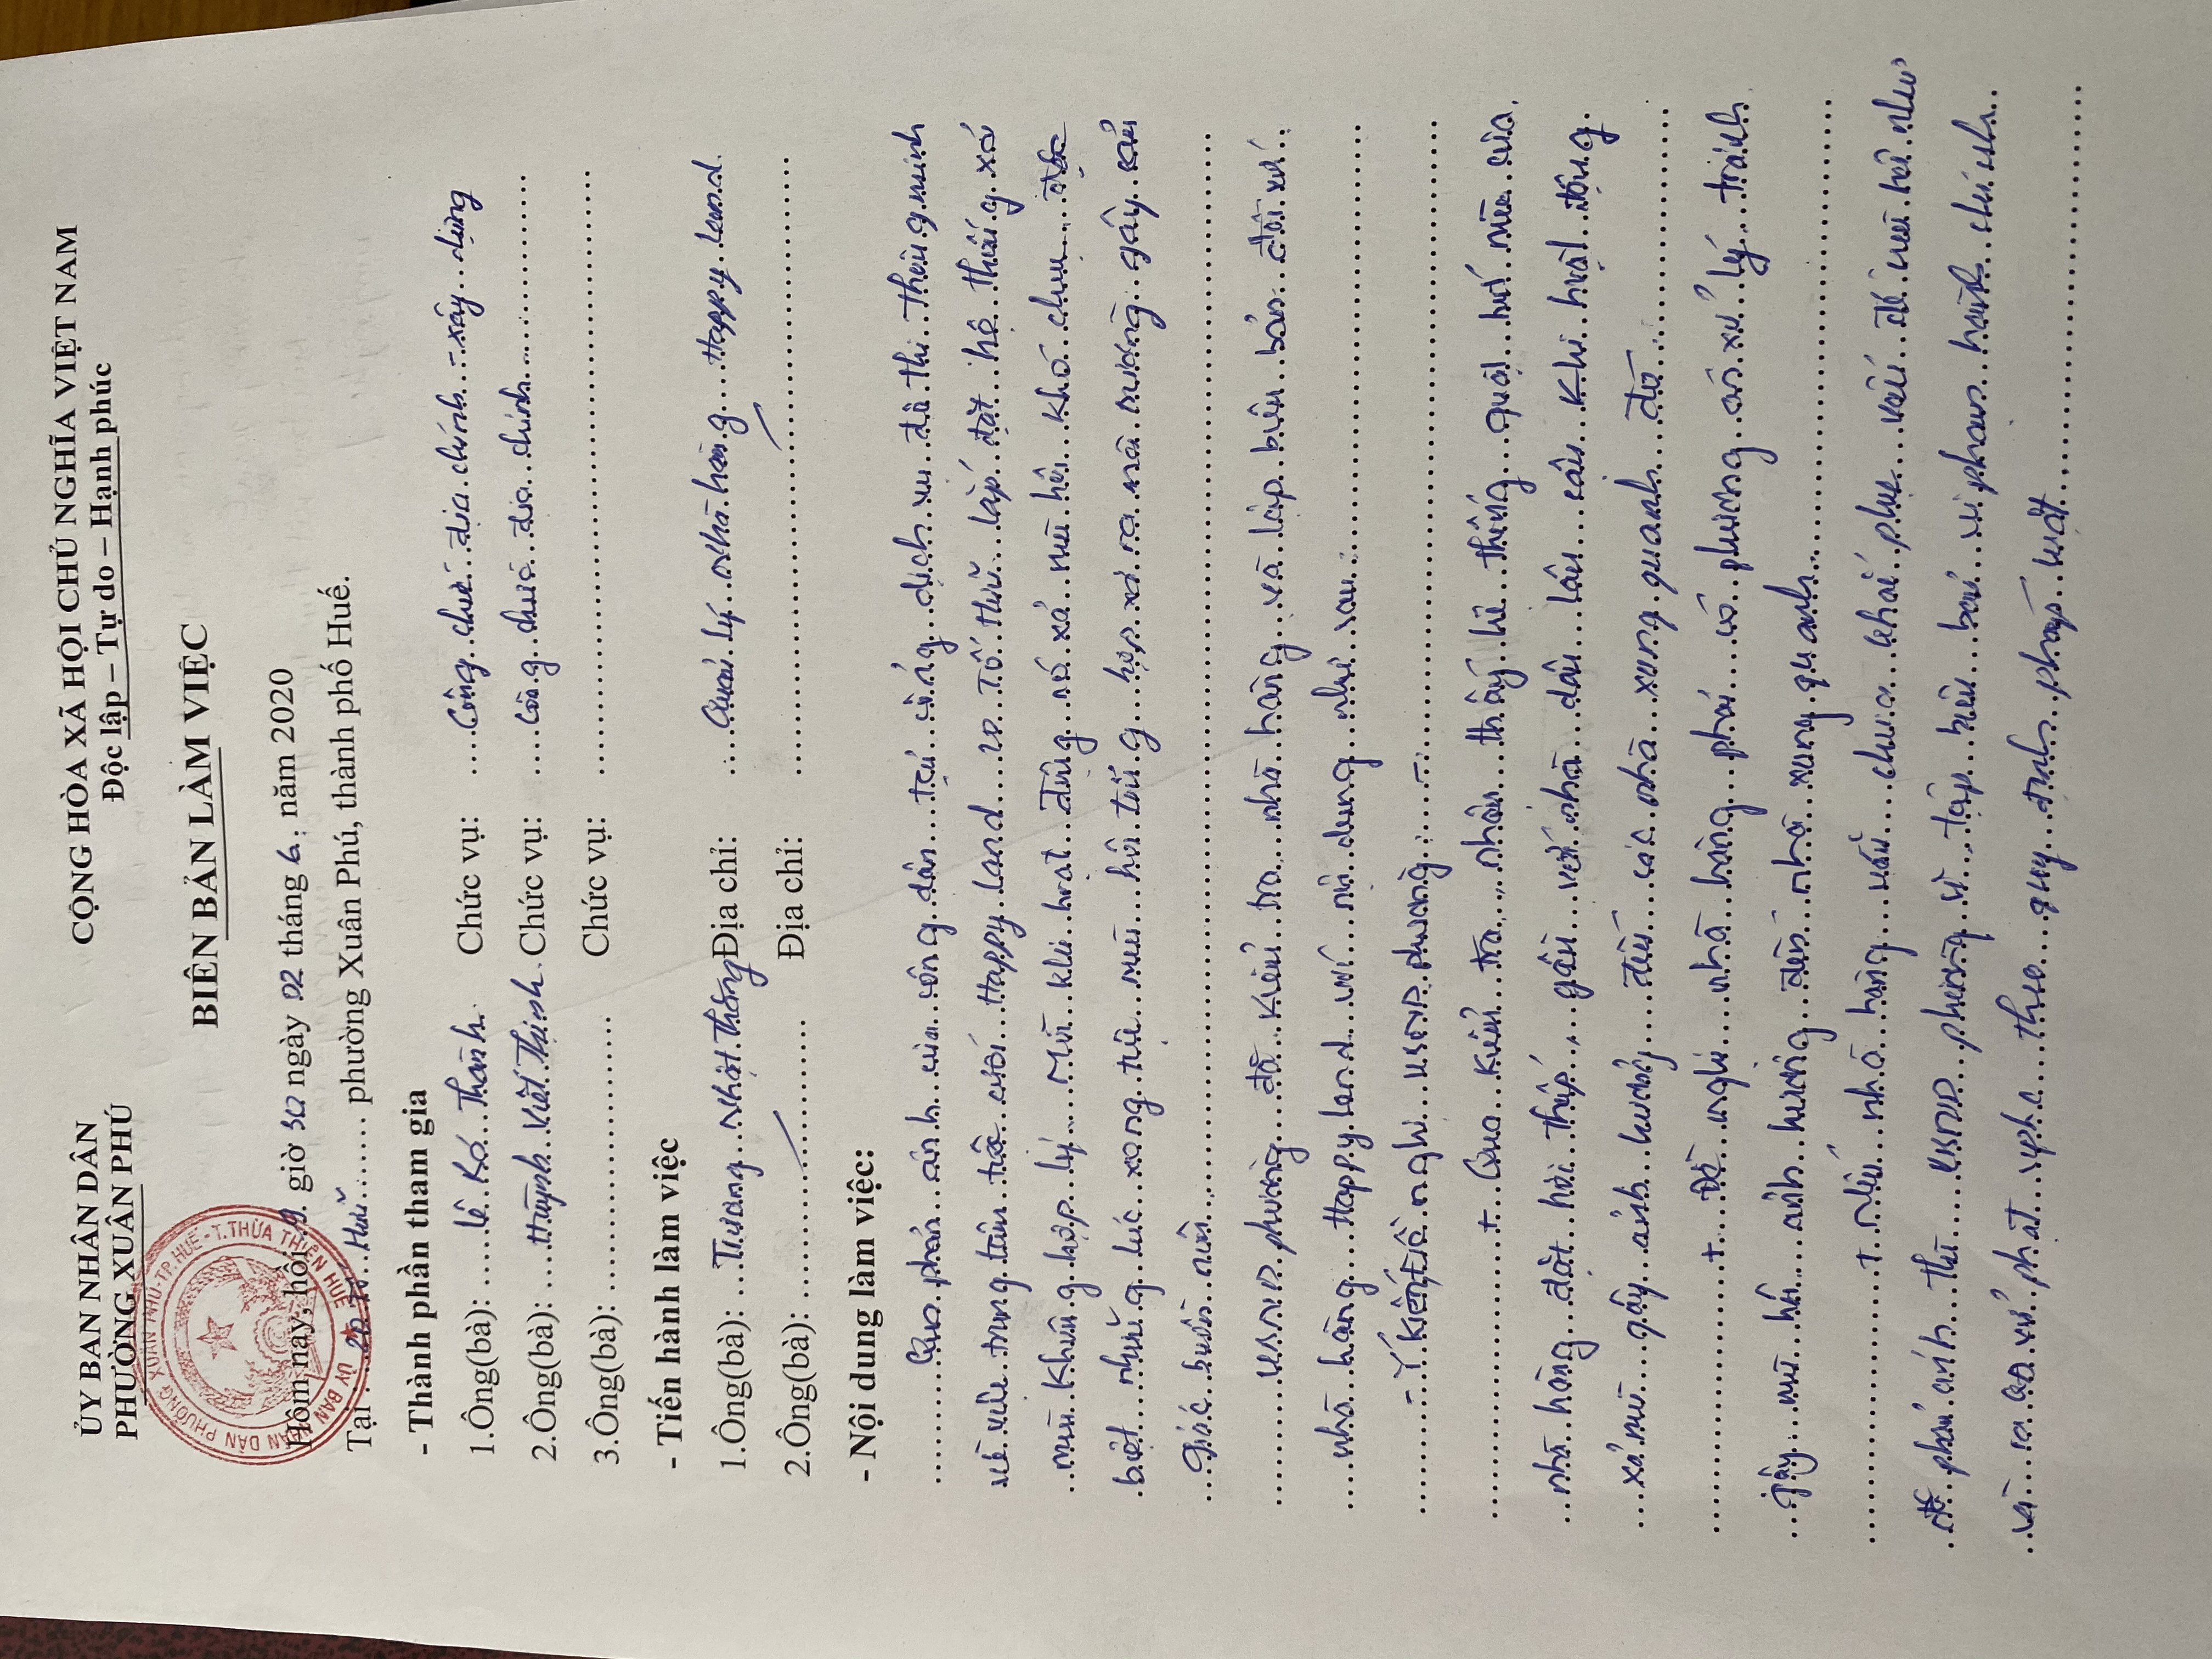 ỦY BAN NHÂN DÂN
PHƯỜNG XUÂN PHÚ
CỘNG HÒA XÃ HỘI CHỦ NGHĨA VIỆT NAM
Độc lập – Tự do – Hạnh phúc
BIÊN BẢN LÀM VIỆC
Hôm nay, hồi 9 giờ 30 ngày 02 tháng 6, năm 2020
Tại phường Xuân Phú, thành phố Huế.
- Thành phần tham gia
1.Ông(bà): Lê Bá Thành Chức vụ: Công chức địa chính - xây dựng
2.Ông(bà): Huỳnh Viết Thịnh Chức vụ: Công chức địa chính
3.Ông(bà): Chức vụ:
- Tiến hành làm việc
1.Ông(bà): Trương Nhật Thắng Địa chỉ: Quản lý nhà hàng Happy land.
2.Ông(bà): Địa chỉ:
- Nội dung làm việc:
Qua phản ánh của công dân trên cổng dịch vụ đô thị thông minh
về việc trung tâm tiệc cưới Happy land 20 Tố Hữu lắp đặt hệ thống xả
mùi không hợp lý. Mỗi khi hoạt động nó xả mùi hôi khó chịu đặc
biệt những lúc xong tiệc mùi hôi từ hộp xả ra mái mương gây cản
giác buồn nôn.
UBND phường đã kiểm tra nhà hàng và lập biên bản đối với
nhà hàng Happy land với nội dung như sau:
- Ý kiến đề nghị UBND phường:
+ Qua kiểm tra, nhận thấy hệ thống quạt hút mùi của
nhà hàng đặt hơi thấp, gần với nhà dân lân cận khi hoạt động
xả mùi gây ảnh hưởng đến các nhà xung quanh đó.
+ Đề nghị nhà hàng phải có phương án xử lý tránh
gây mùi hôi ảnh hưởng đến nhà xung quanh.
+ Nếu nhà hàng vẫn chưa khắc phục vấn đề mùi hôi như
đã phản ánh thì UBND phường sẽ lập biên bản vi phạm hành chính
và ra QĐ xử phạt vphc theo quy định pháp luật.